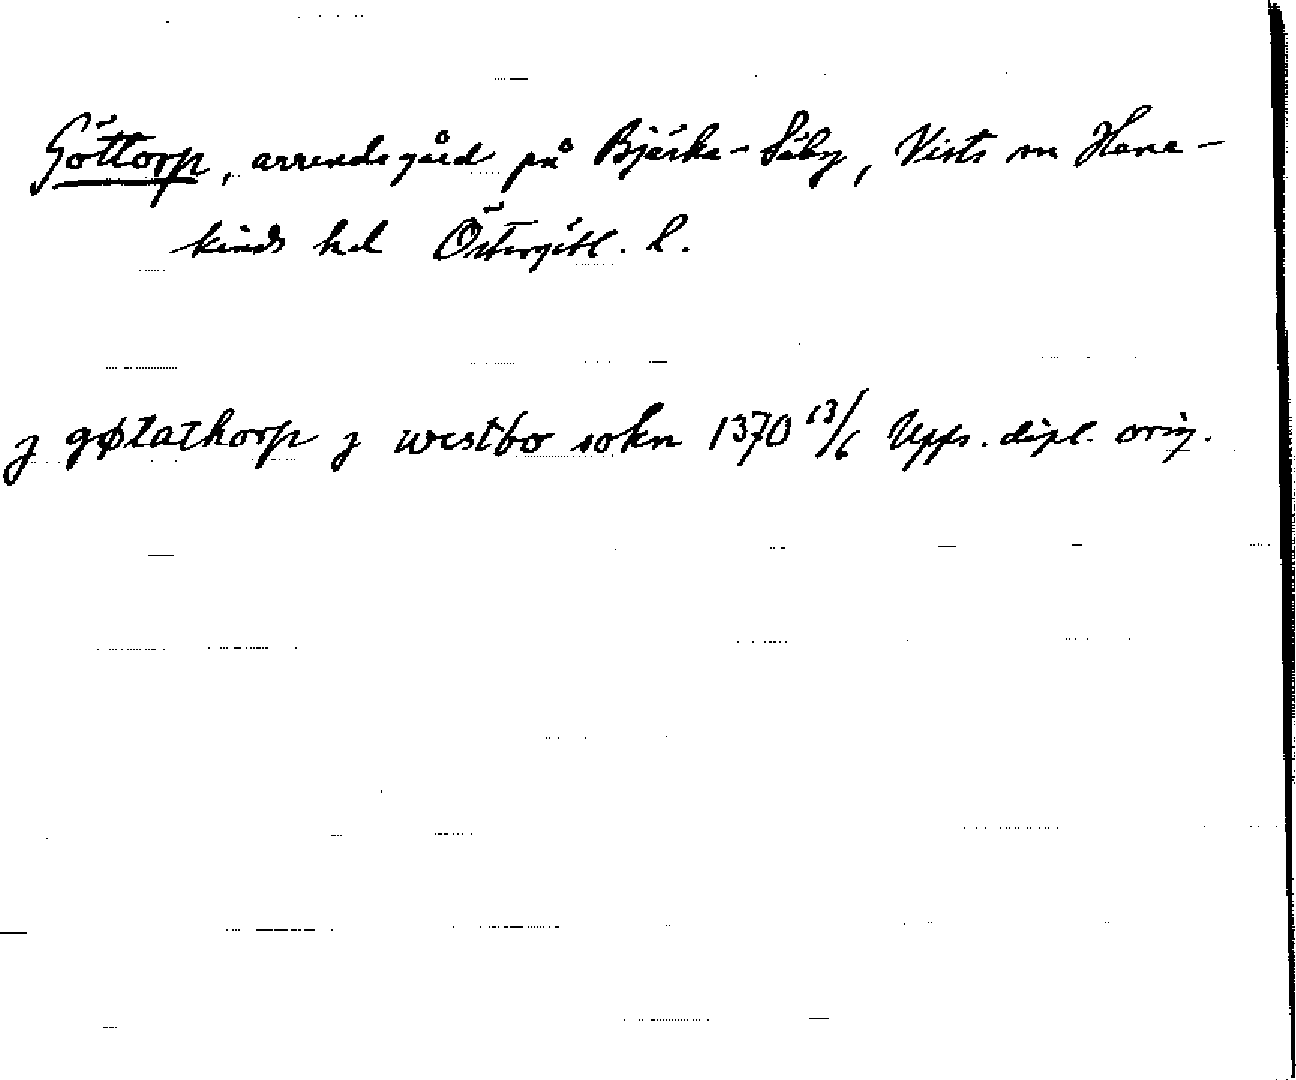 Göttorp, arrendegård på Bjärka-Säby, Vists sn Hane-
kinds hd Östergötl. l.
j gøtathorp j westbo sokn 1370 13/6 Upps. dipl. orig.